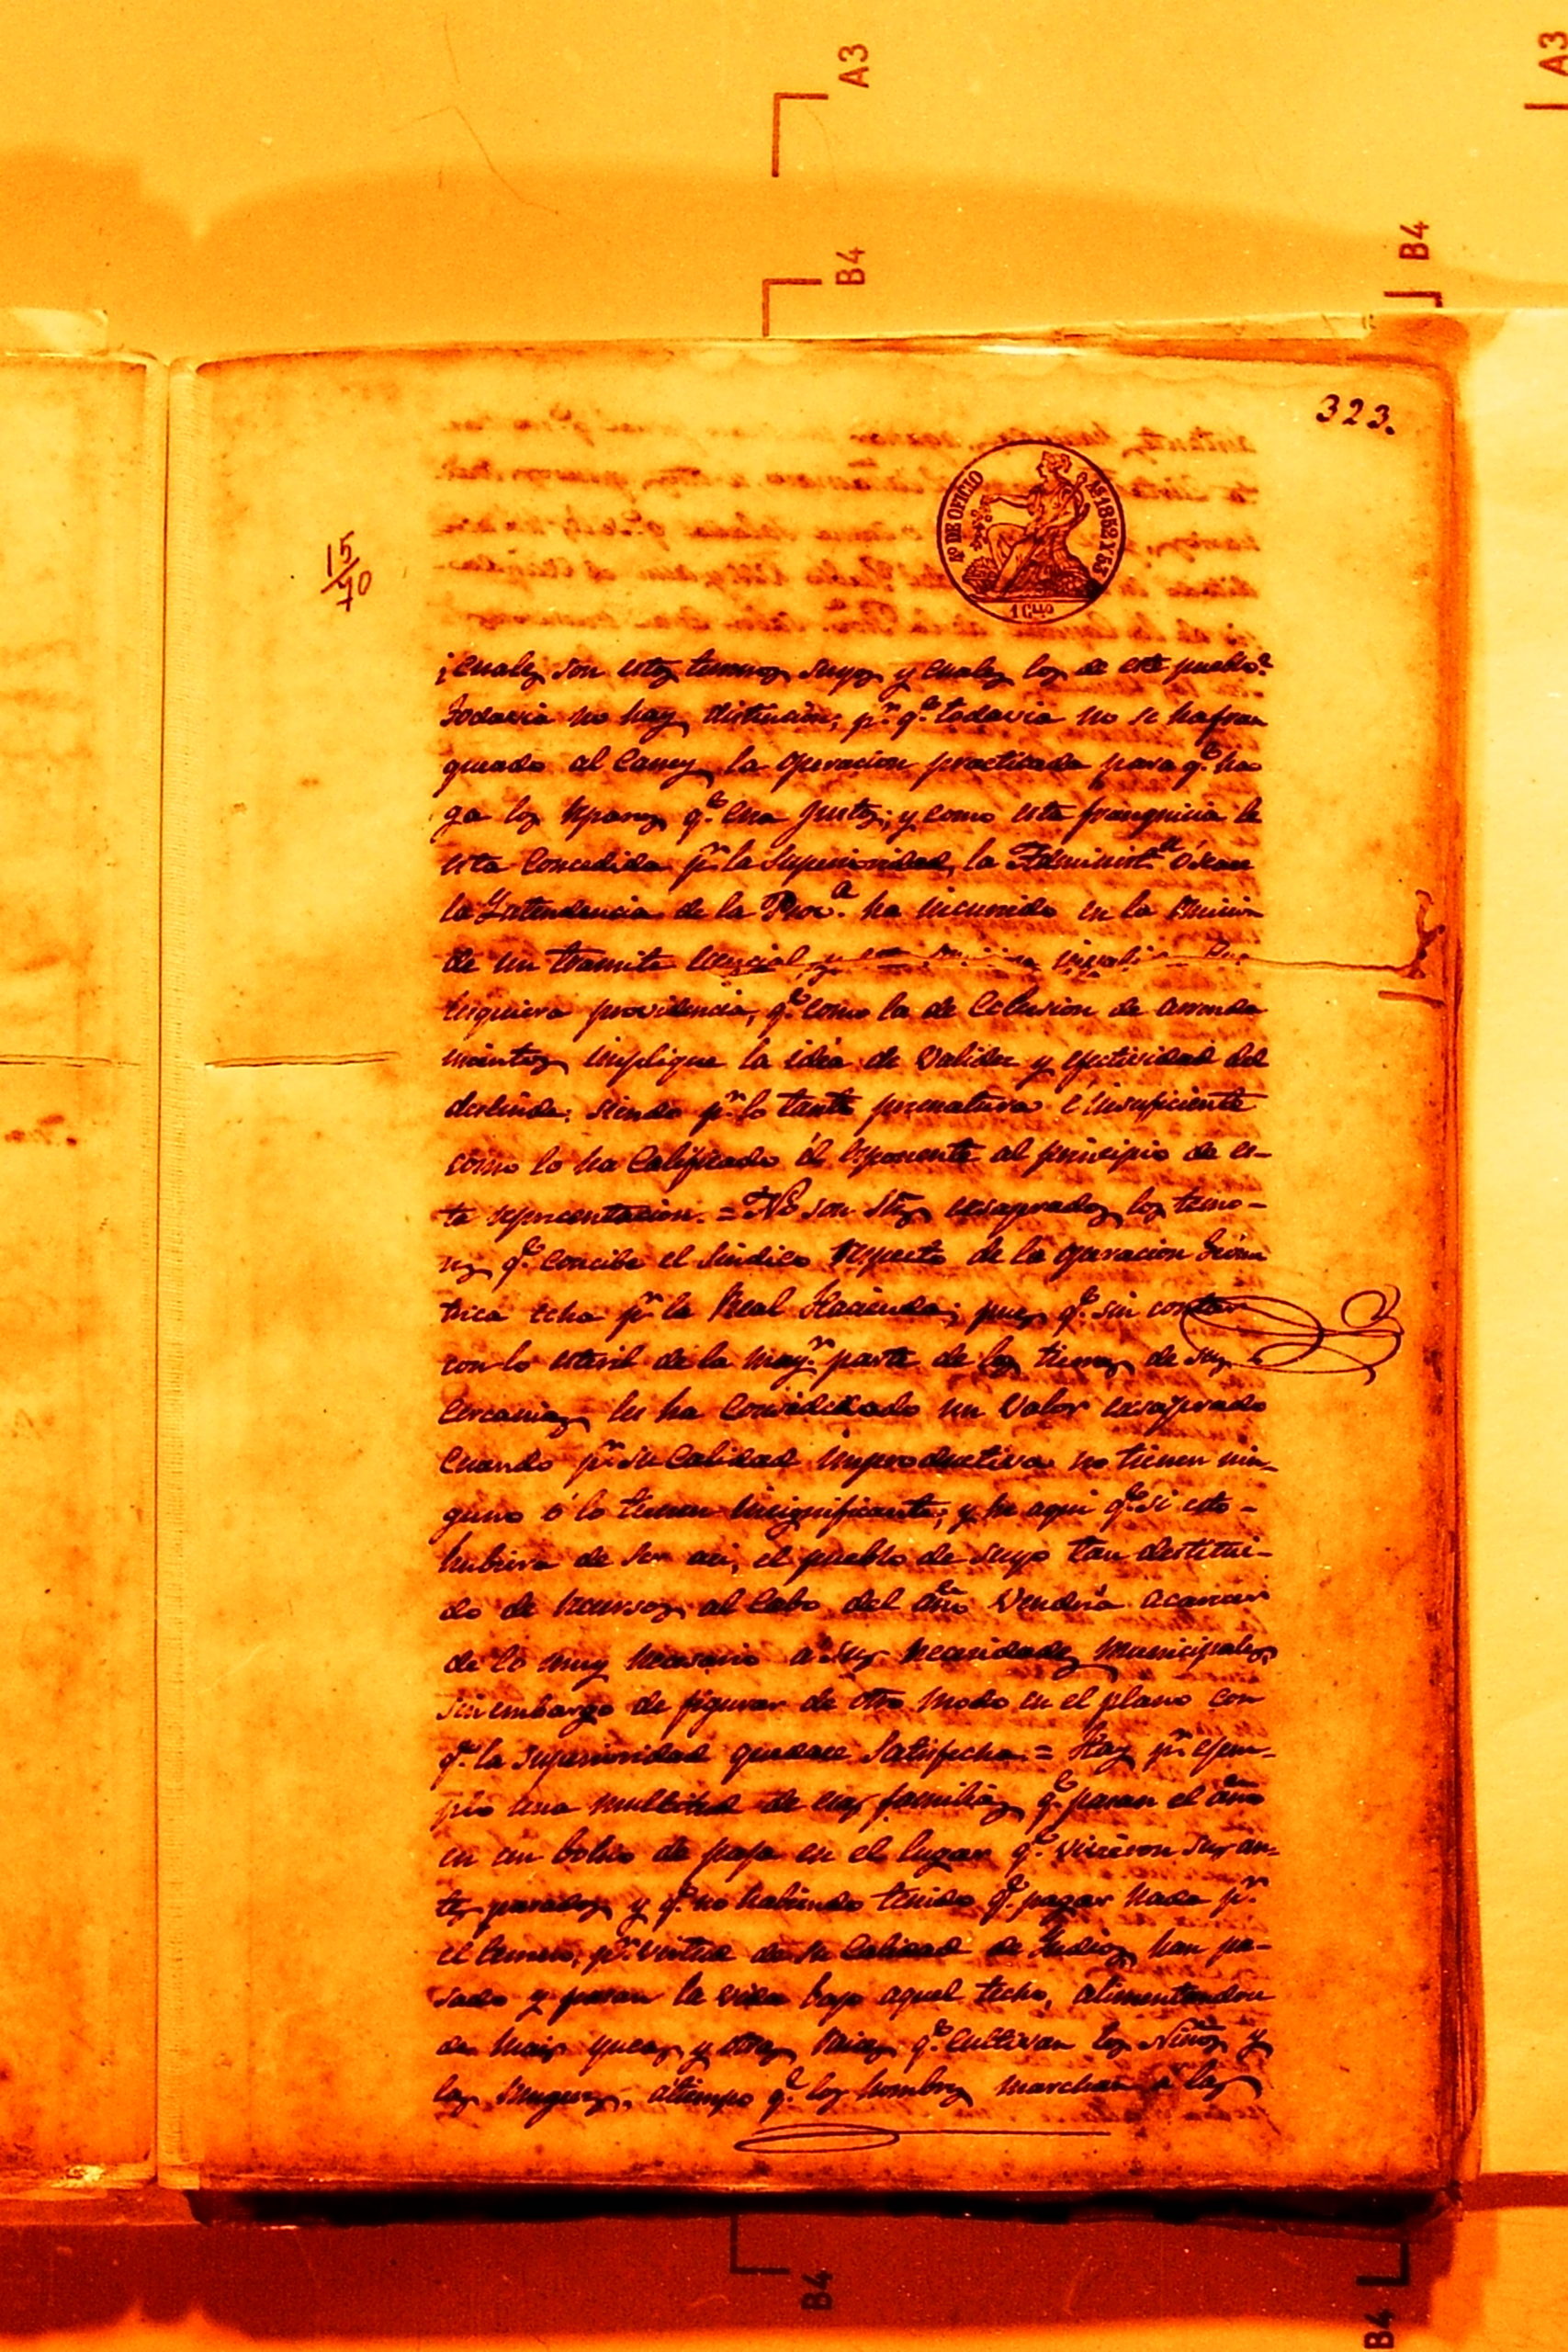 A3
A3
B4
B4
323.
15
70
4º DE OFICIO
AS. 1852 Y 53
1 Cllo
¿cuales son estos terrenos suyos y cuales los de este pueblo?
Todavia no hay distincion; pr. qe. todavia no se ha fran
queado al Caney la operacion practicada para qe. ha
ga los reparos qe. crea justos; y como esta franquicia le
esta concedida pr. la Superioridad, la Administn. ó sease
la Yntendencia de la Prova. ha incurrido en la omision
de un tramite escencial y
esquiera providencia, qe. como la de celebrasion de arrenda
mientos implique la idea de validez y efectividad del
deslinde; siendo pr. lo tanto prematura é insuficiente
como lo ha calificado él esponente al principio de es-
ta representacion. = No son Sres. exsagerados los temo-
res qe. concibe el Sindico respecto de la operacion Geomé
trica echa pr. la Real Hacienda; pues qe. sin contar
con lo esteril de la mayr. parte de los tierras de sus
cercanias les ha considerado un valor exsagerado
cuando pr. su calidad improductiva no tienen nin-
guno ó lo tienen insignificante; y he aqui qe. si esto
hubiera de ser asi, el pueblo de suyo tan destitui-
do de recursos al cabo del año vendria a carecer
de lo muy necesario a sus necesidades municipales,
sin embargo de figurar de otro modo en el plano con
qe. la superioridad quedase satisfecha = Hay pr. ejem-
plo una multitud de esas familias qe. pasan el año
en un bohio de paja en el lugar qe. vivieron sus an-
tepasados y qe. no habiendo tenido qe. pagar nada pr.
el terreno, pr. virtud de su calidad de Yndios han pa-
sado y pasan la vida bajo aquel techo, alimentandose
de mais yucas y otras raices qe. cultivan los Niños y
las mugeres, altiempo qe. los hombres marchan á las
B4
B4